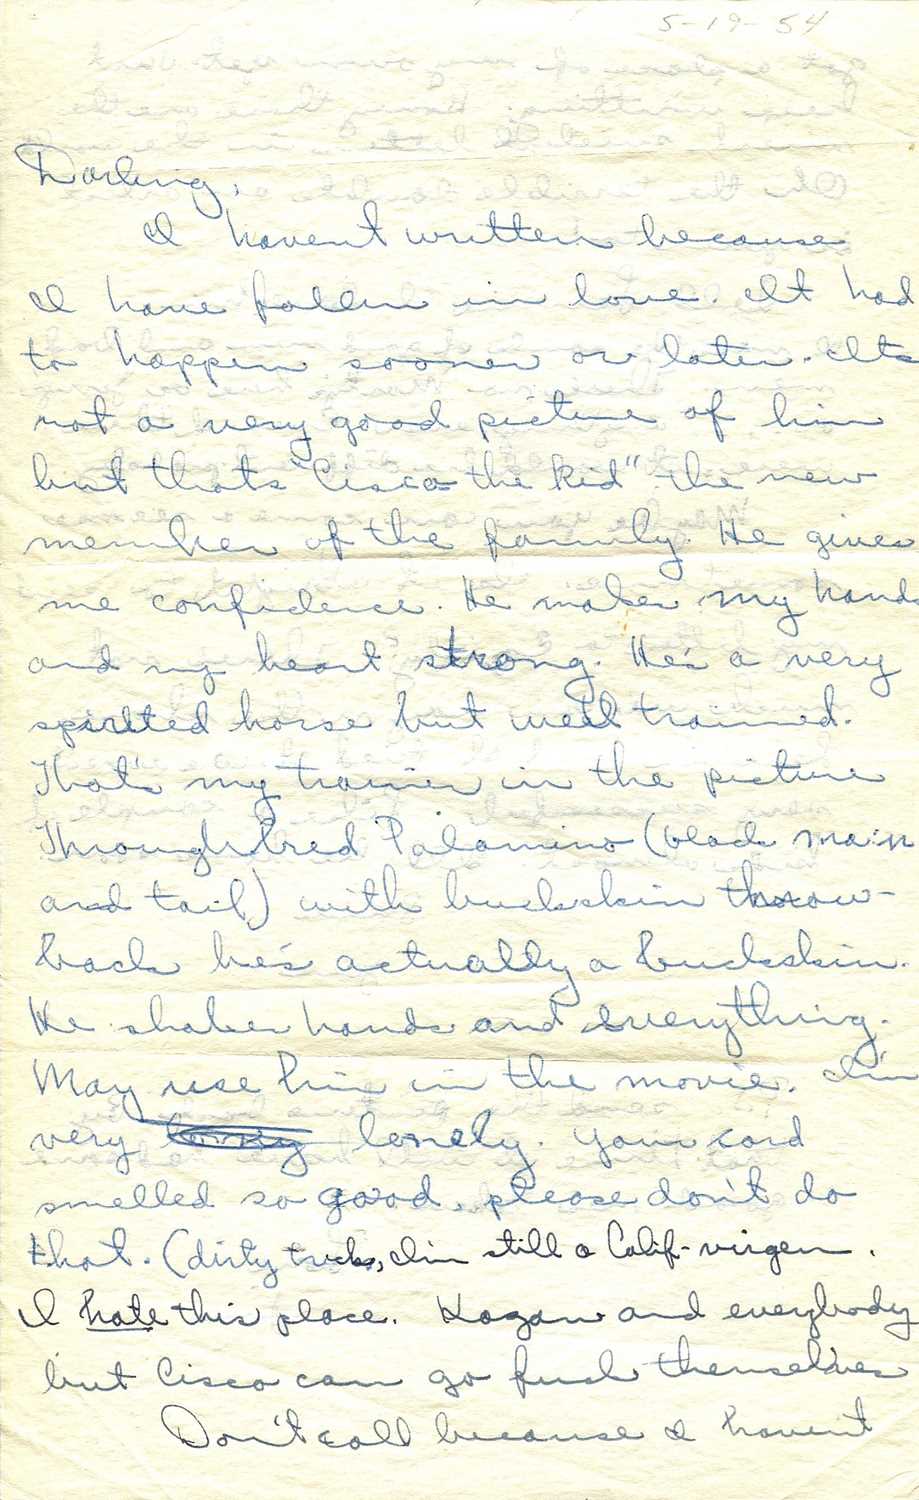 5-19-54
Darling,
I havent written because
I have fallen in love. It had
to happen sooner or later. Its
not a very good picture of him
but thats "Cisco the Kid" the new
member of the family. He gives
me confidence. He makes my hands
and my heart strong. He's a very
spirited horse but well trained.
That's my trainer in the picture
Throughbred Palamino (black main
and tail) with buckskin throw-
back he's actually a buckskin.
He shakes hands and everything.
May use him in the movie. I'm
very lonely. Your card
smelled so good, please don't do
that. (dirty tricks, I'm still a Calif-virgen.
I hate this place. Kazan and everybody
but Cisco can go fuck themselves
Don't call because I havent